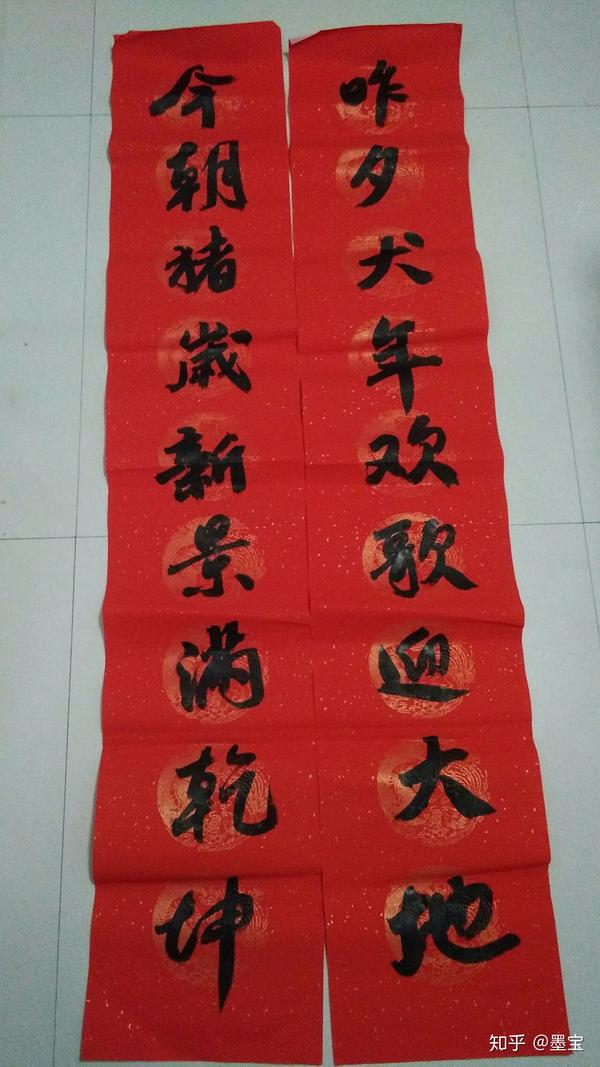 昨夕犬年欢歌迎大地
今朝猪歲新景满乾坤
知乎 @墨宝